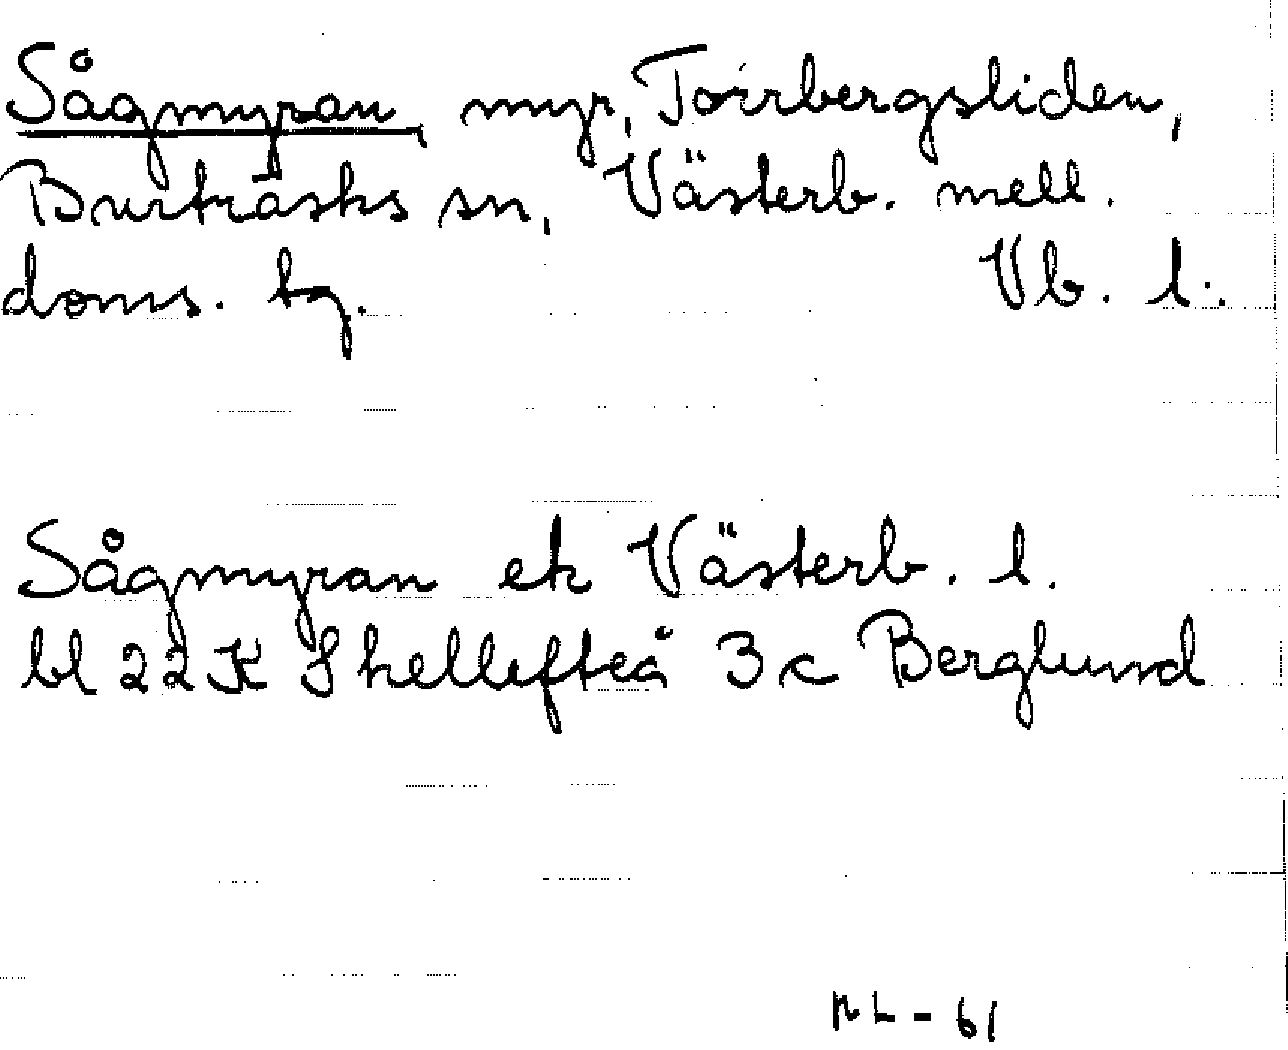 Sågmyran, myr, Torrbergsliden,
Burträsks sn, Västerb. mell.
doms. tg. Vb. l.
Sågmyran ek Västerb. l.
bl 22 K Skellefteå 3 c Berglund
NL - 61